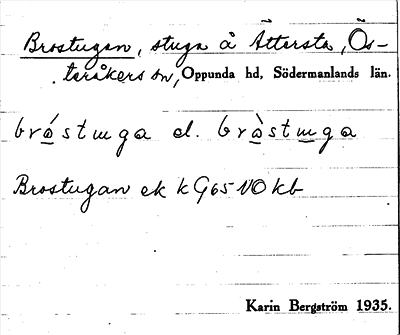 Brostugan, stuga å Ättersta, Ös-
teråkers sn, Oppunda hd, Södermanlands län.
brǻstuga el. bràstuga
Brostugan ek kG65 NO kb
Karin Bergström 1935.